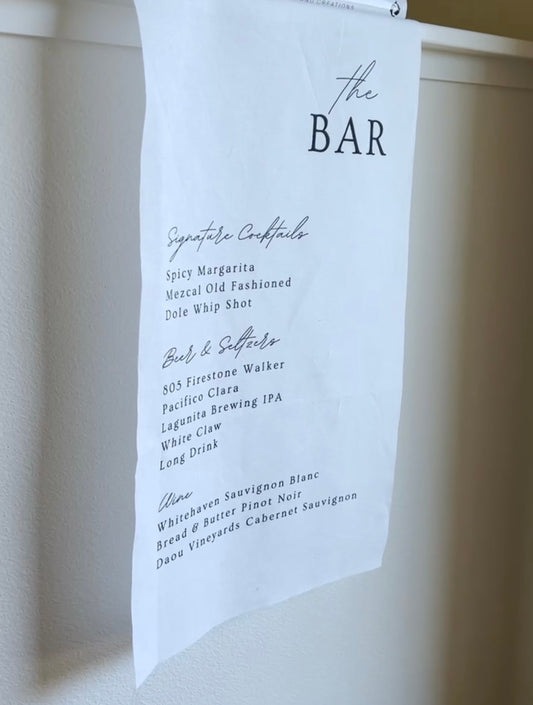 CREATIONS
the
BAR
Signature Cocktails
Spicy Margarita
Mezcal Old Fashioned
Dole Whip Shot
Beer & Seltzers
805 Firestone Walker
Pacifico Clara
Lagunita Brewing IPA
White Claw
Long Drink
Wine
Whitehaven Sauvignon Blanc
Bread & Butter Pinot Noir
Daou Vineyards Cabernet Sauvignon